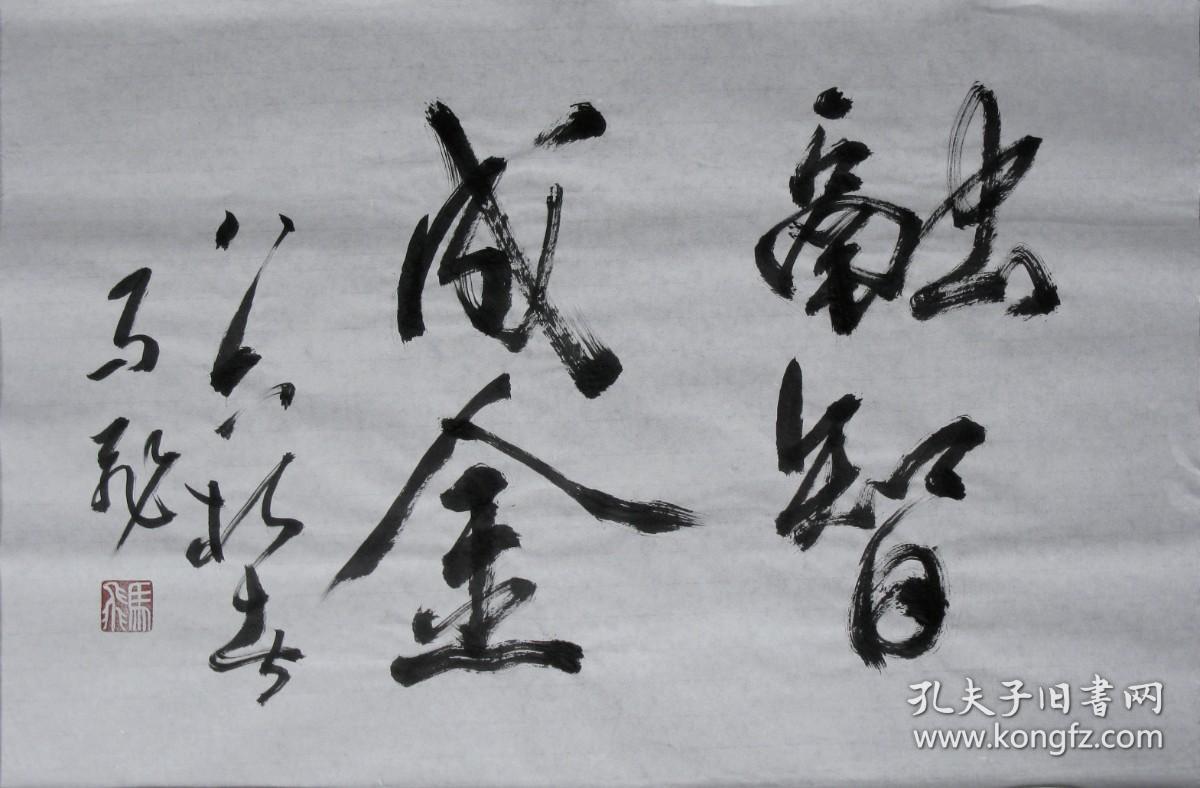 融智
成金
马飛
馬飛
孔夫子旧書网
www.kongfz.com